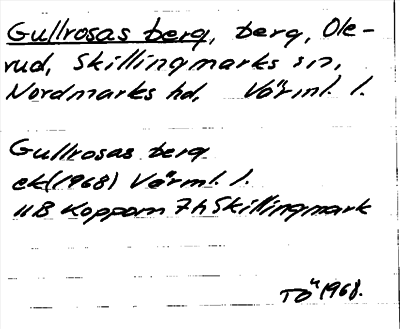 Gullrosas berg, berg, Ole-
rud, Skillingmarks sn,
Nordmarks hd, Värml. l.
Gullrosas berg
ek(1968) Värml. l.
11B Koppom 7h Skillingmark
TÖ 1968.